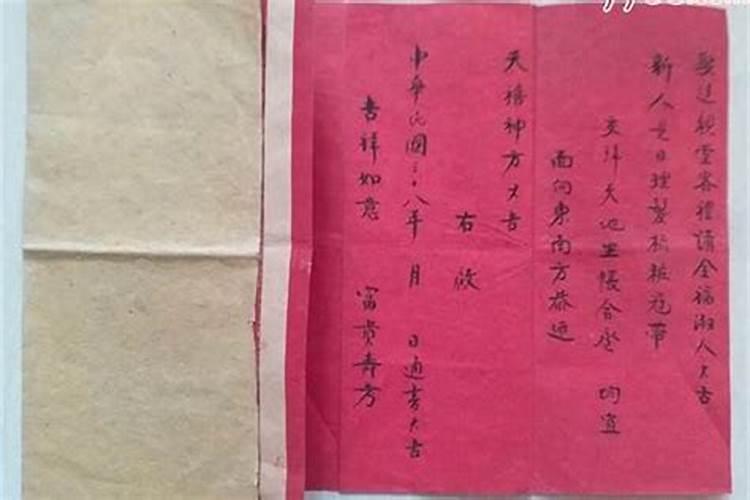 娶送親堂客裡請全福淑人大吉
新人是日理髮梳粧冠帶
交拜天地坐帳合卺 均宜
面向東南方恭迎
天禧神方大吉
右啟
中華民國三十八年 月 日通書大吉
吉祥如意 富貴壽方